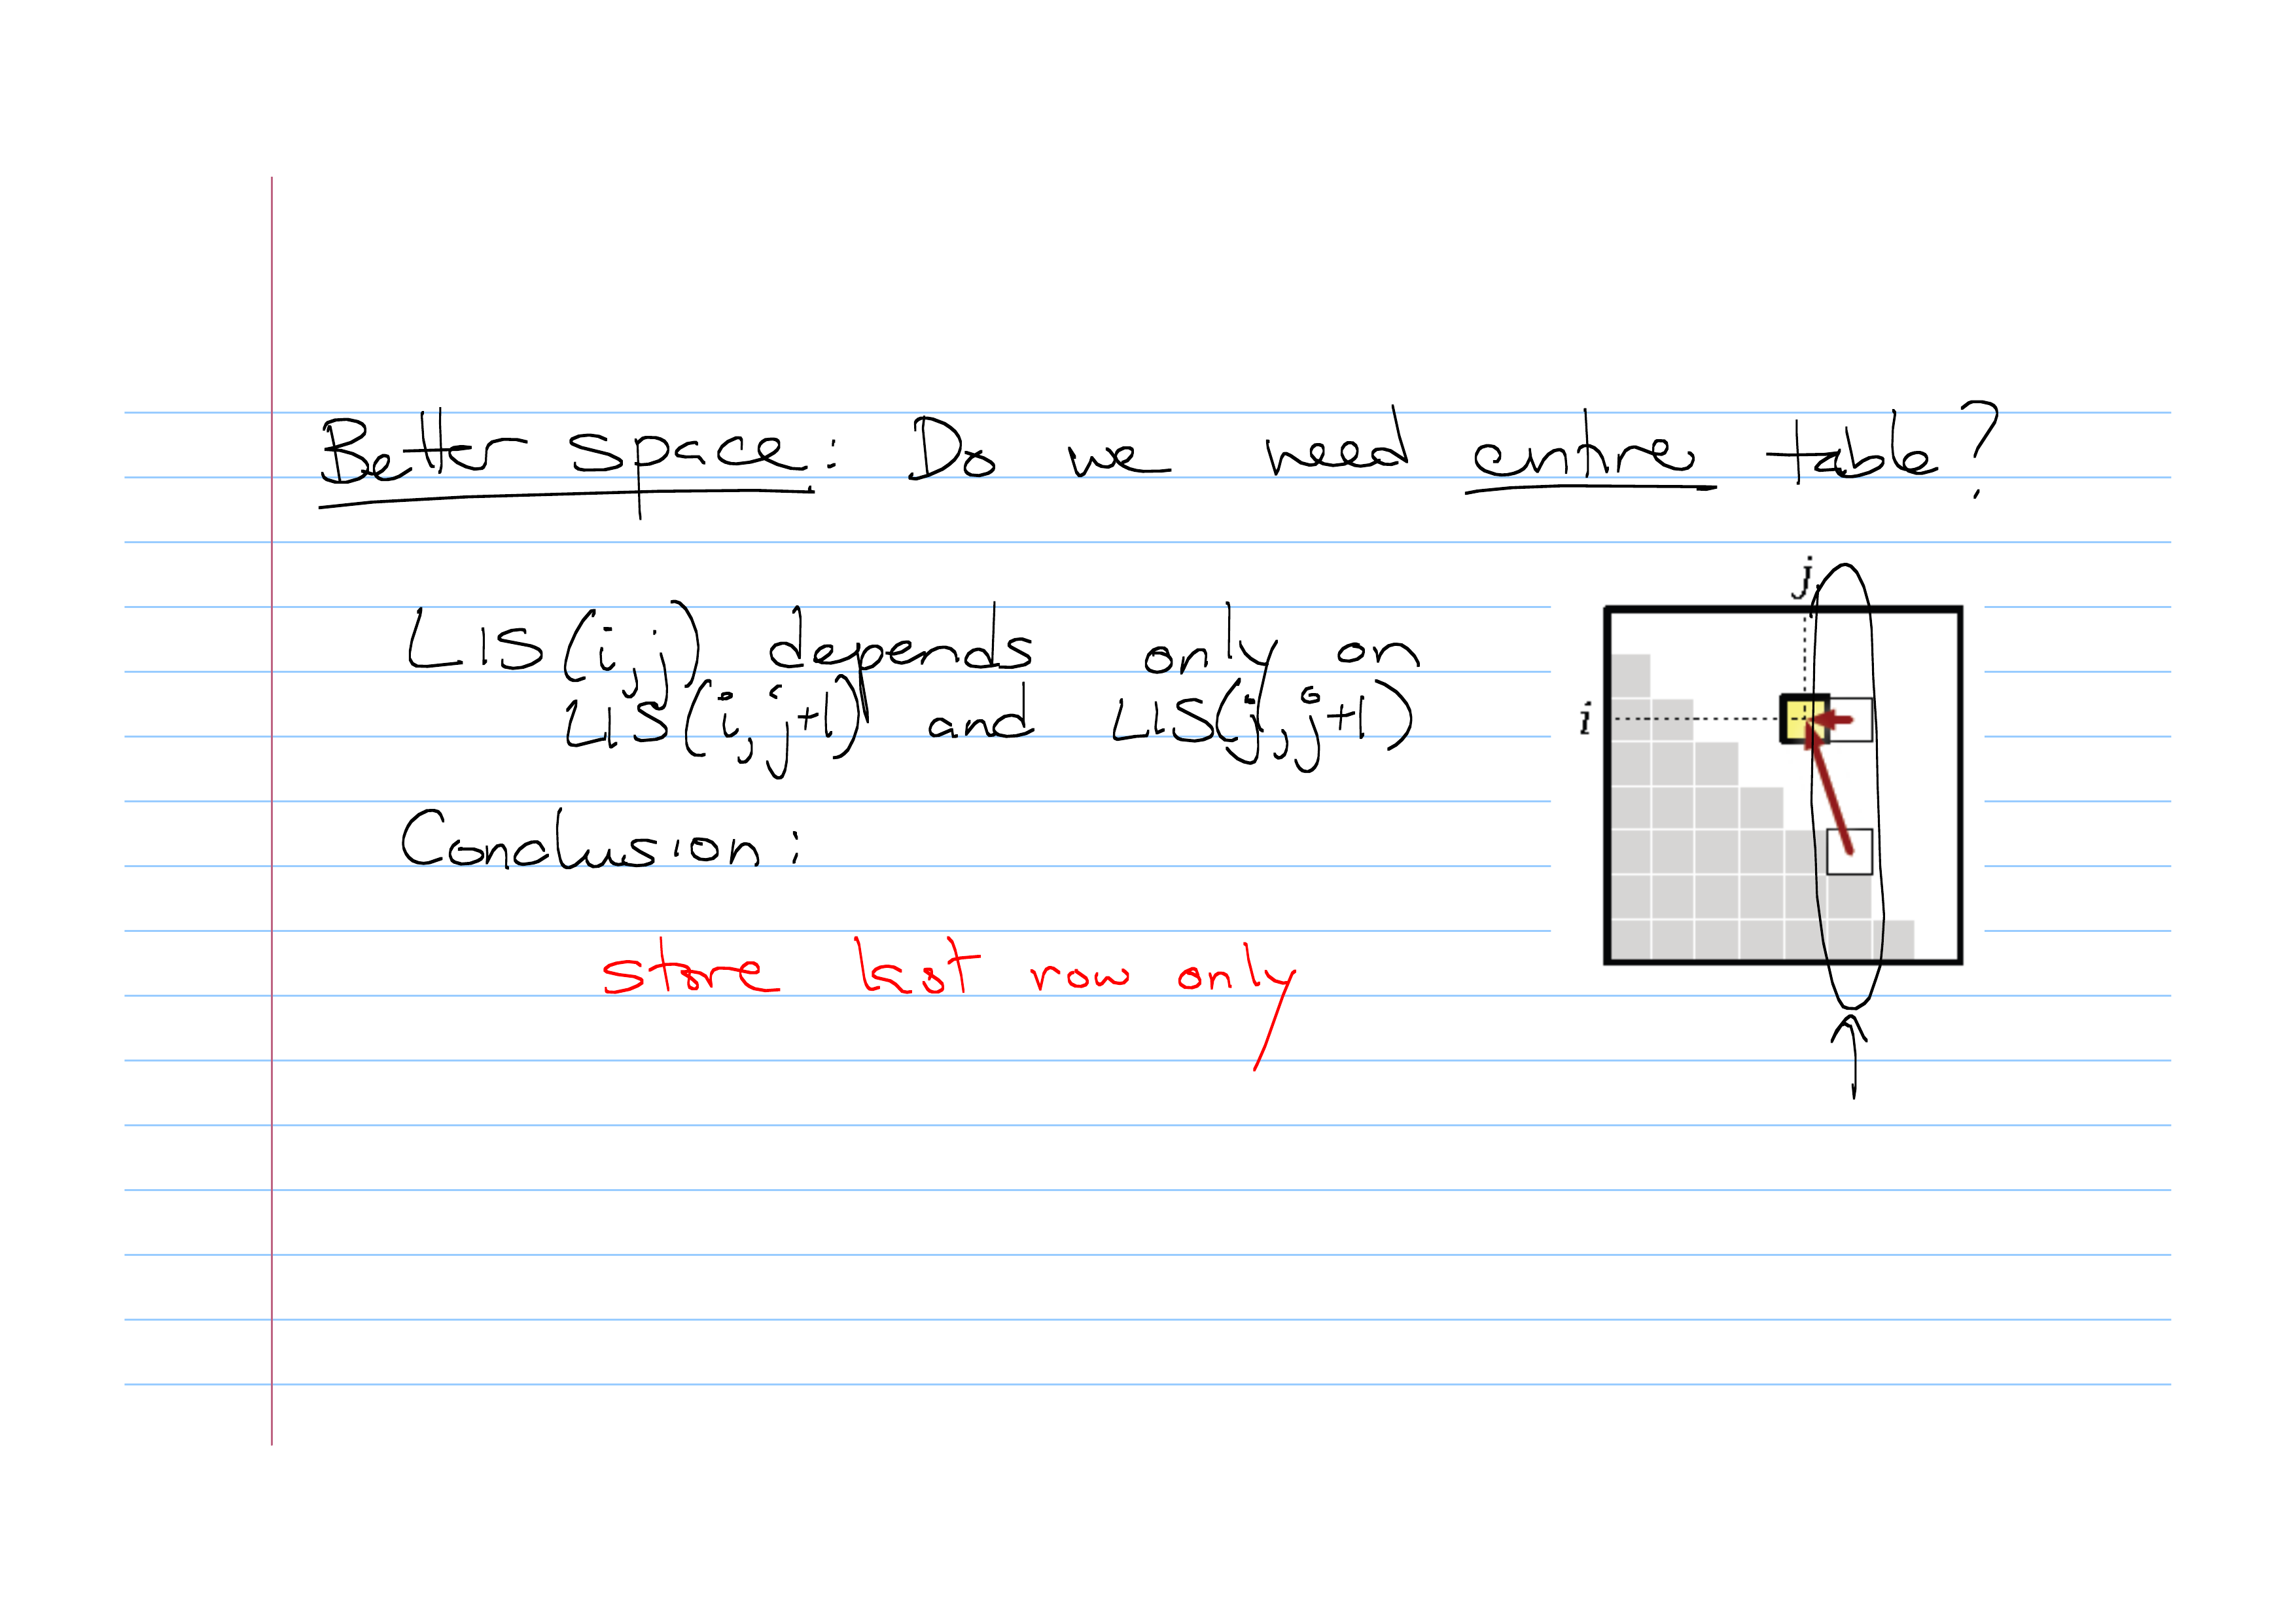 Better space: Do we need entire table?
j
LIS(i,j) depends only on
LIS(i,j+1) and LIS(j,j+1)
i
Conclusion:
store last row only